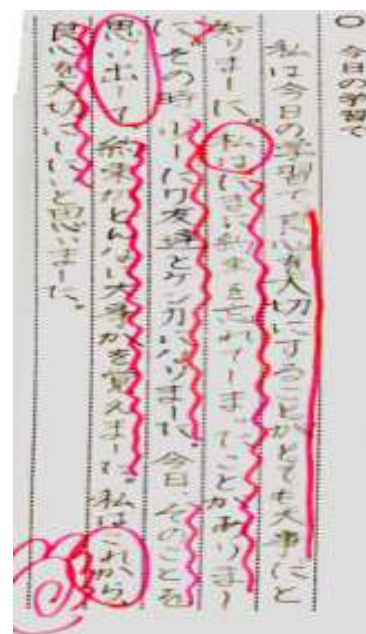 ○ 今日の学習で
私は今日の学習で良心を大切にすることがとても大事だと
知りました。私はだ 約束を忘れてしまったことがありまし
た。その時 友達とケンカになりました。今日、そのことを
思い出して約束がどんなに大事かを覚えました。私はこれから、
良心を大切にしたいと思いました。